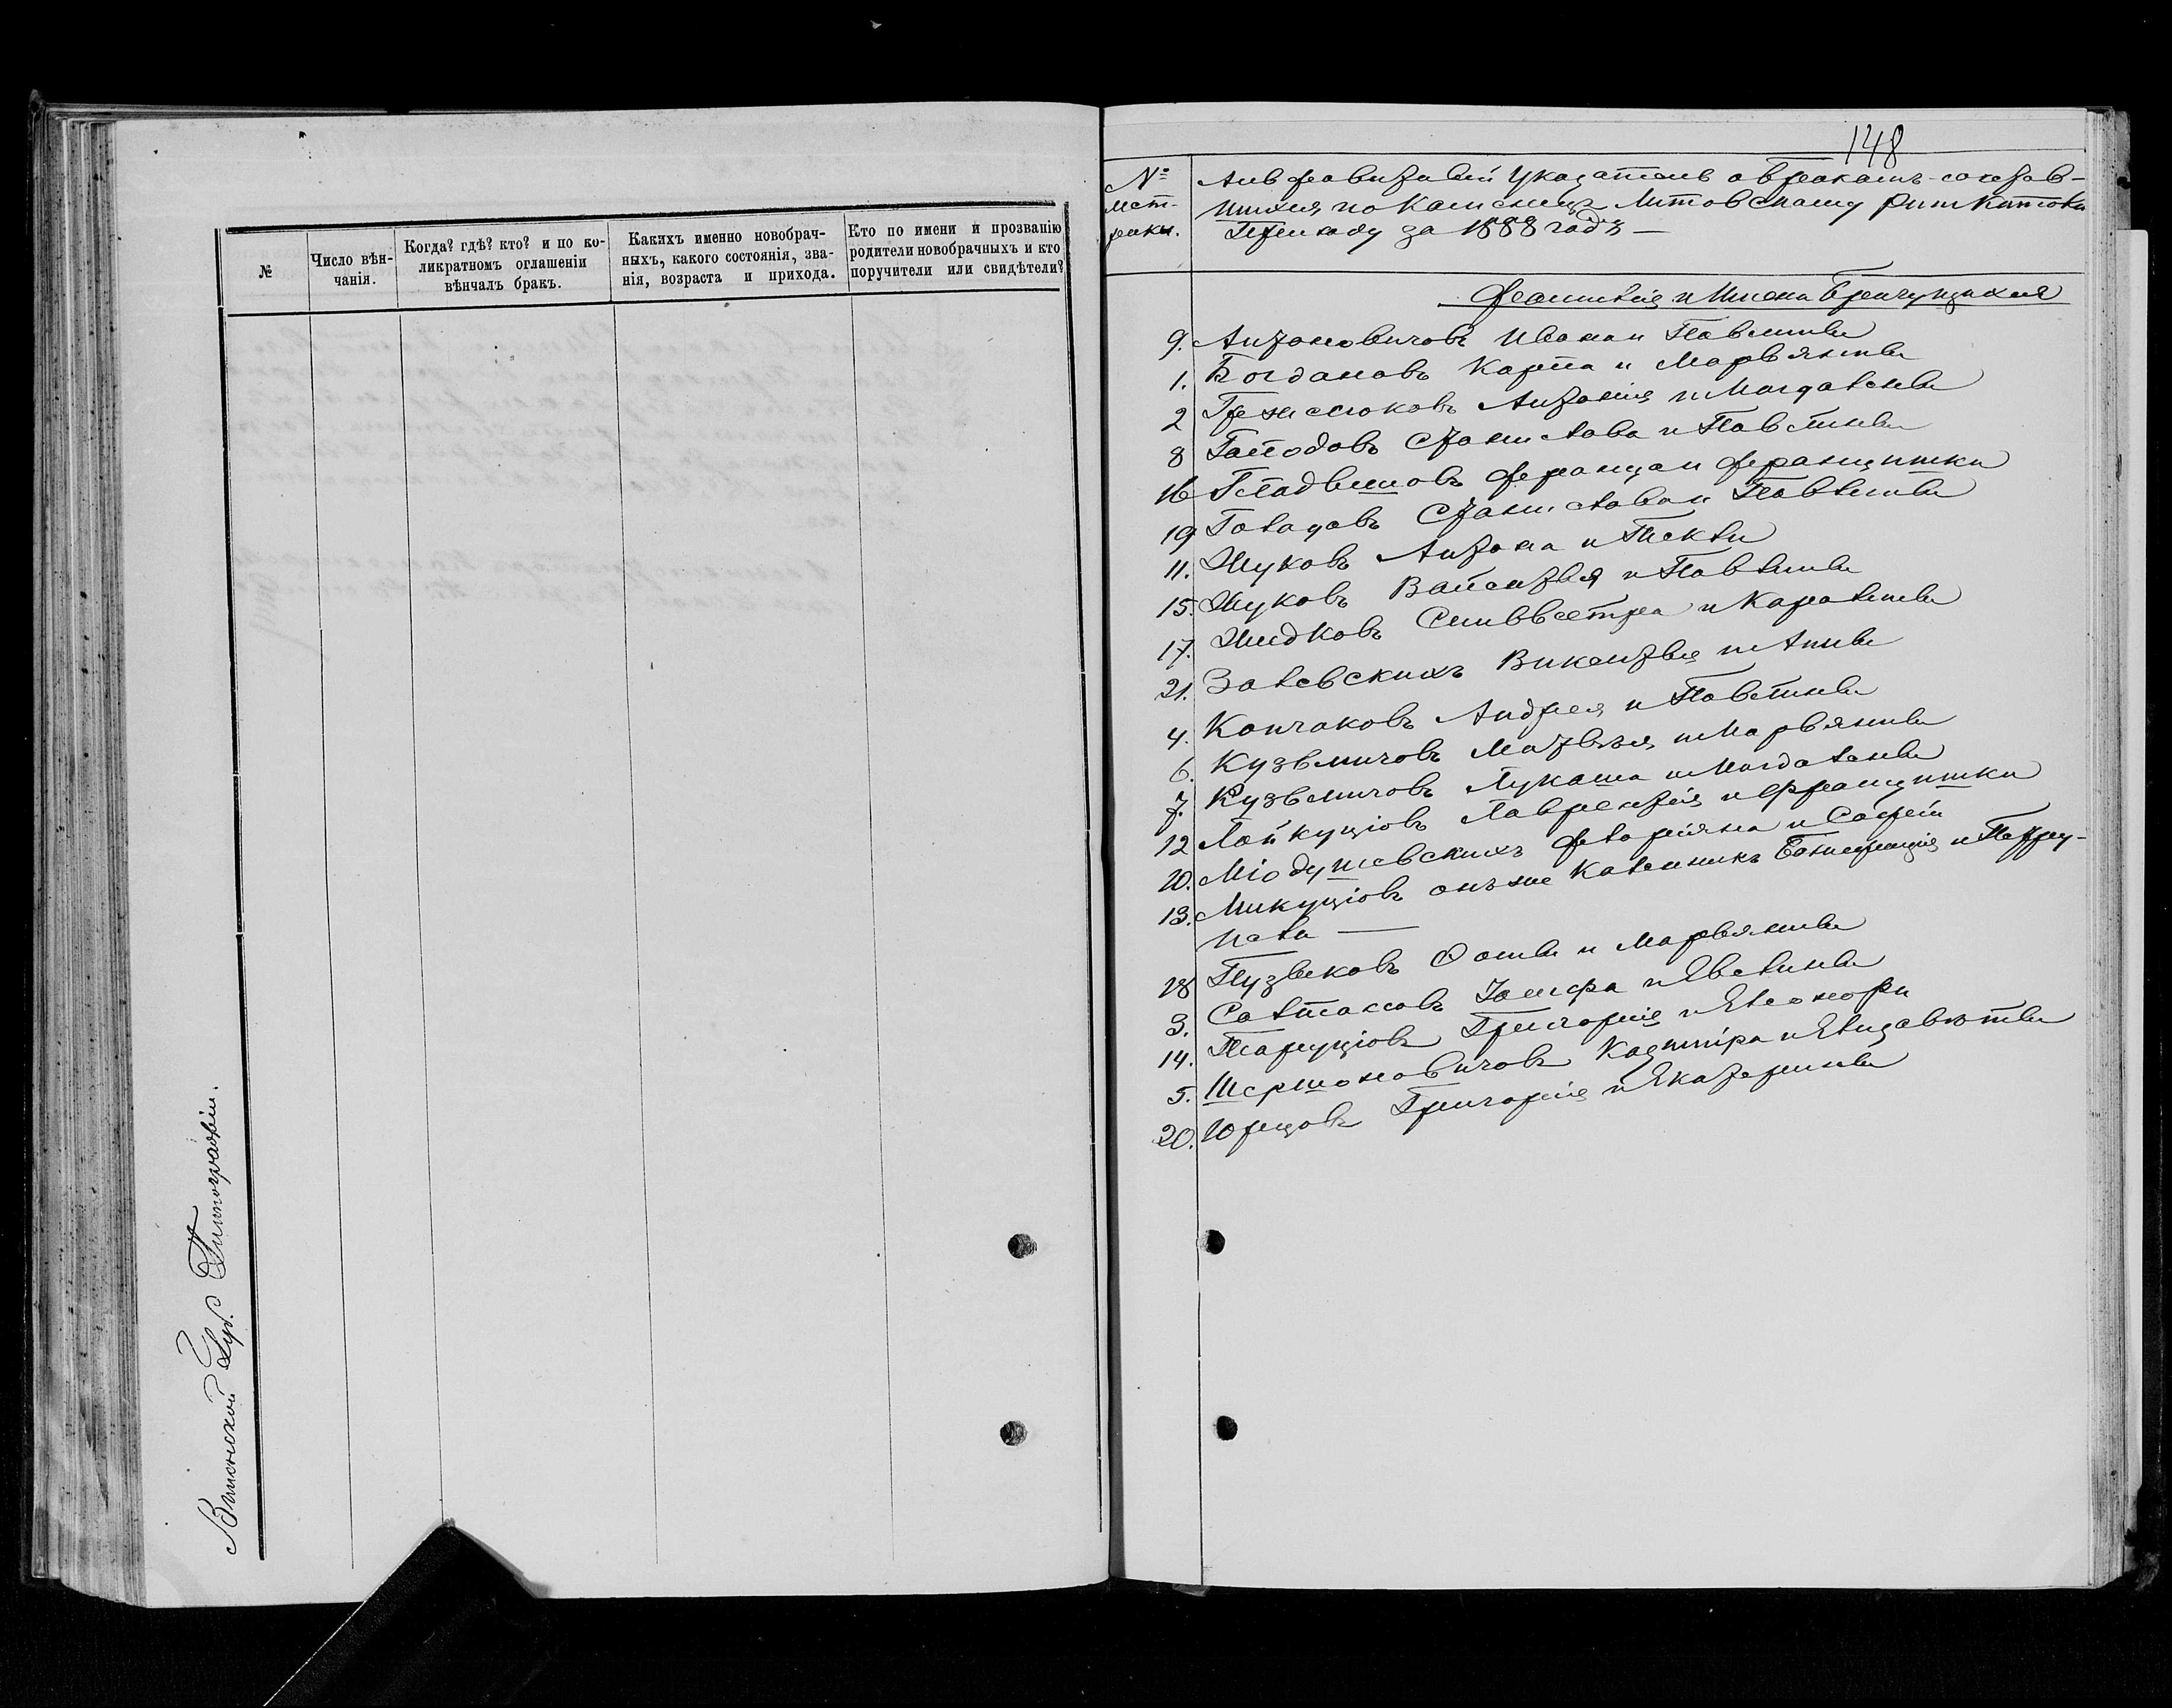 №
Число вѣн-
чанія.
Когда? гдѣ? кто? и по ко-
ликратномъ оглашеніи
вѣнчалъ бракъ.
Какихъ именно новобрач-
ныхъ, какого состоянія, зва-
нія, возраста и прихода.
Кто по имени и прозванію
родители новобрачныхъ и кто
поручители или свидѣтели?
Виленской Губ. Типографіи.
148
№
мет-
рики.
Алфавитный Указатель о бракахъ состояв-
шихся по Каменецъ Литовскому Рим Католи
Приходу за 1888 годъ —
Фамилія и Имена Брачущихся
9. Антоновичовъ Ивана и Павлины
1. Богдановъ Карпа и Марьянны
2 Антонія и Магдалены
8 Станислава и Павлины
16 Франца и Францишки
19 Станислава и Павлины
11. Жуковъ Антона и Теклы
15. Жуковъ Павлины
17. Жидковъ Сильвестра и Каролины
21. Залевскихъ Викентія и Анны
4. Кончаковъ Андрея и Павлины
6. Кузьмичовъ Матвѣя и Марьянны
7. Кузьмичовъ Лукаша и Магдалены
12 Лойкуціовъ Лаврентія и Францишки
10. Міодушевскихъ Флоріяна и Софіи
13. Микуціовъ онъ же Калѣнникъ Бонифація и Петру-
нели —
18 Пузыковъ Осипа и Марьянны
3. Іосифа и Евелины
14. Таруціовъ Григорія и Елеоноры
5. Шершеновичовъ Казиміра и Елизаветы
20. Юрцовъ Григорія и Екатерины